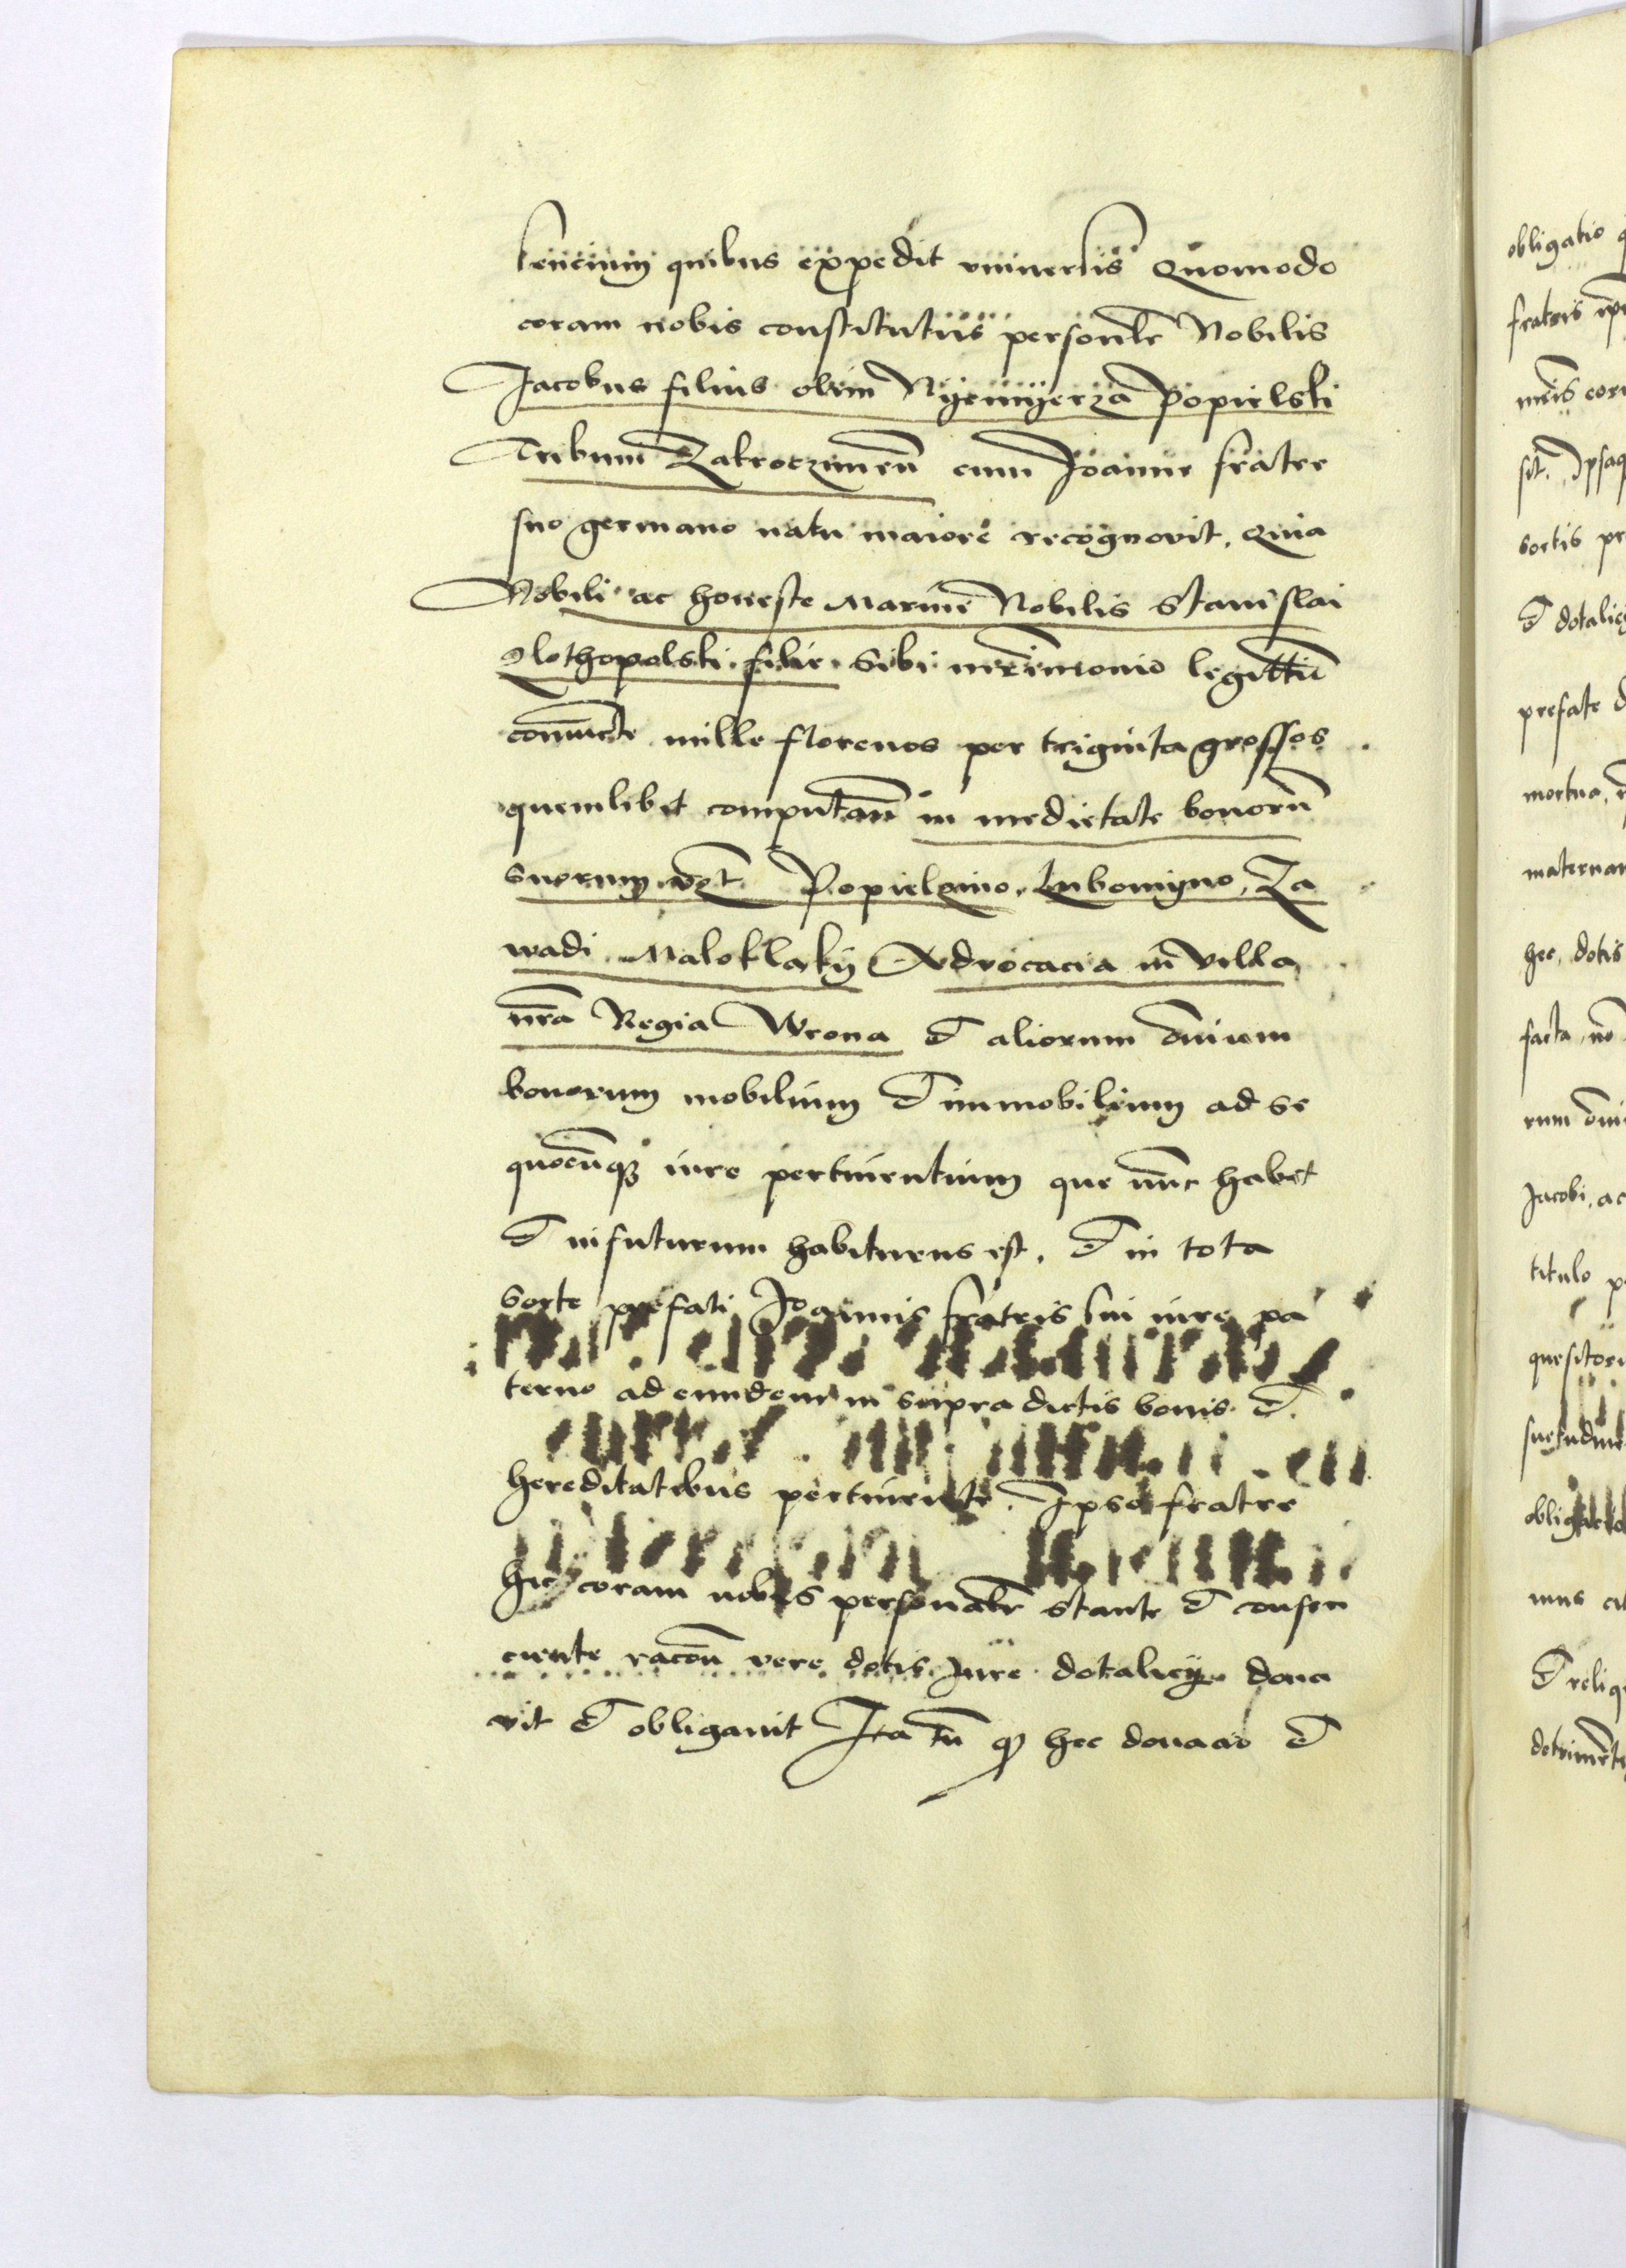 sencium quibus expedit universis Quomodo
coram nobis constitutus personlr Nobilis
Jacobus filius olim Nyemyerza Popielski
Tribuni Zakroczimeñ cum Joanne fratre
suo germano natu maiore recognovit, Quia
Nobili ac honeste Marine Nobilis Stanislai
Zlothopolski filie sibi mr̃imonio legittĩe
coniuncte mille florenos per triginta grossos
quemlibet computañ in medietate bonorũ
suorum vz̃t Popielzino, Lubomyno, Za
wadi Maloklaky Advocacia in villa
nr̃a Regia Wrona et aliorum om̃ium
bonorum mobilium et immobilium ad se
quocũqȝ iure pertinentium que nũc habet
et in futurum habiturus est, et in tota
sorte prefati Joannis fratris sui iure pa
terno ad eundem in supra dictis bonis et
hereditatibus pertinente. Ipso fratre
hic coram nobis personalr̃ stante et consen
ciente racoñe vere dotis Jure dotalicy dona
vit et obligavit Ita tñ qȝ hec donacio et
obligatio
fratris
sit. Ipsaq
sortis
et dotalicy
prefate
mortua,
maternam
hec, dotis
facta, nõ
rum
Jacobi, ac
titulo
quesitori
et reliq